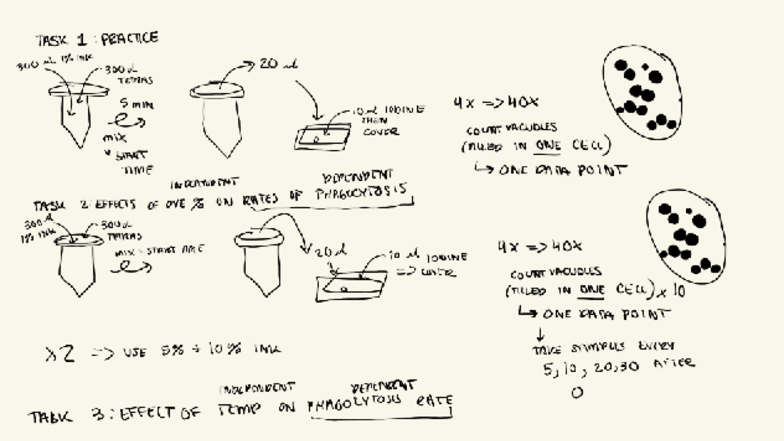 TASK 1: PRACTICE
300 uL 1% INK
300uL
TETRAS
5 min
mix
* START
TIME
20 uL
10uL IODINE
THEN
COVER
4x => 40x
COUNT VACUOLES
(FILLED IN ONE CELL)
↳ ONE DATA POINT
INDEPENDENT
DEPENDENT
TASK 2: EFFECTS OF DYE % ON RATES OF PHAGOCYTOSIS
300uL
1% INK
300uL
TETRAS
mix = START TIME
20uL
10 uL IODINE
=> COVER
4x => 40x
COUNT VACUOLES
(FILLED IN ONE CELL) x 10
↳ ONE DATA POINT
↓
TAKE SAMPLES EVERY
5, 10, 20, 30 AFTER
0
x2 => USE 5% + 10% INK
INDEPENDENT
DEPENDENT
TASK 3: EFFECT OF TEMP ON PHAGOCYTOSIS RATE